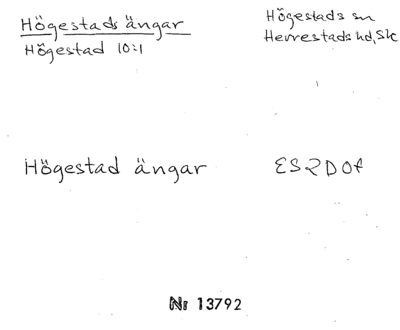 Högestads ängar
Högestad 10:1
Högestads sn
Herrestads hd, Sk
Högestad ängar
ES2D0f
Nr 13792